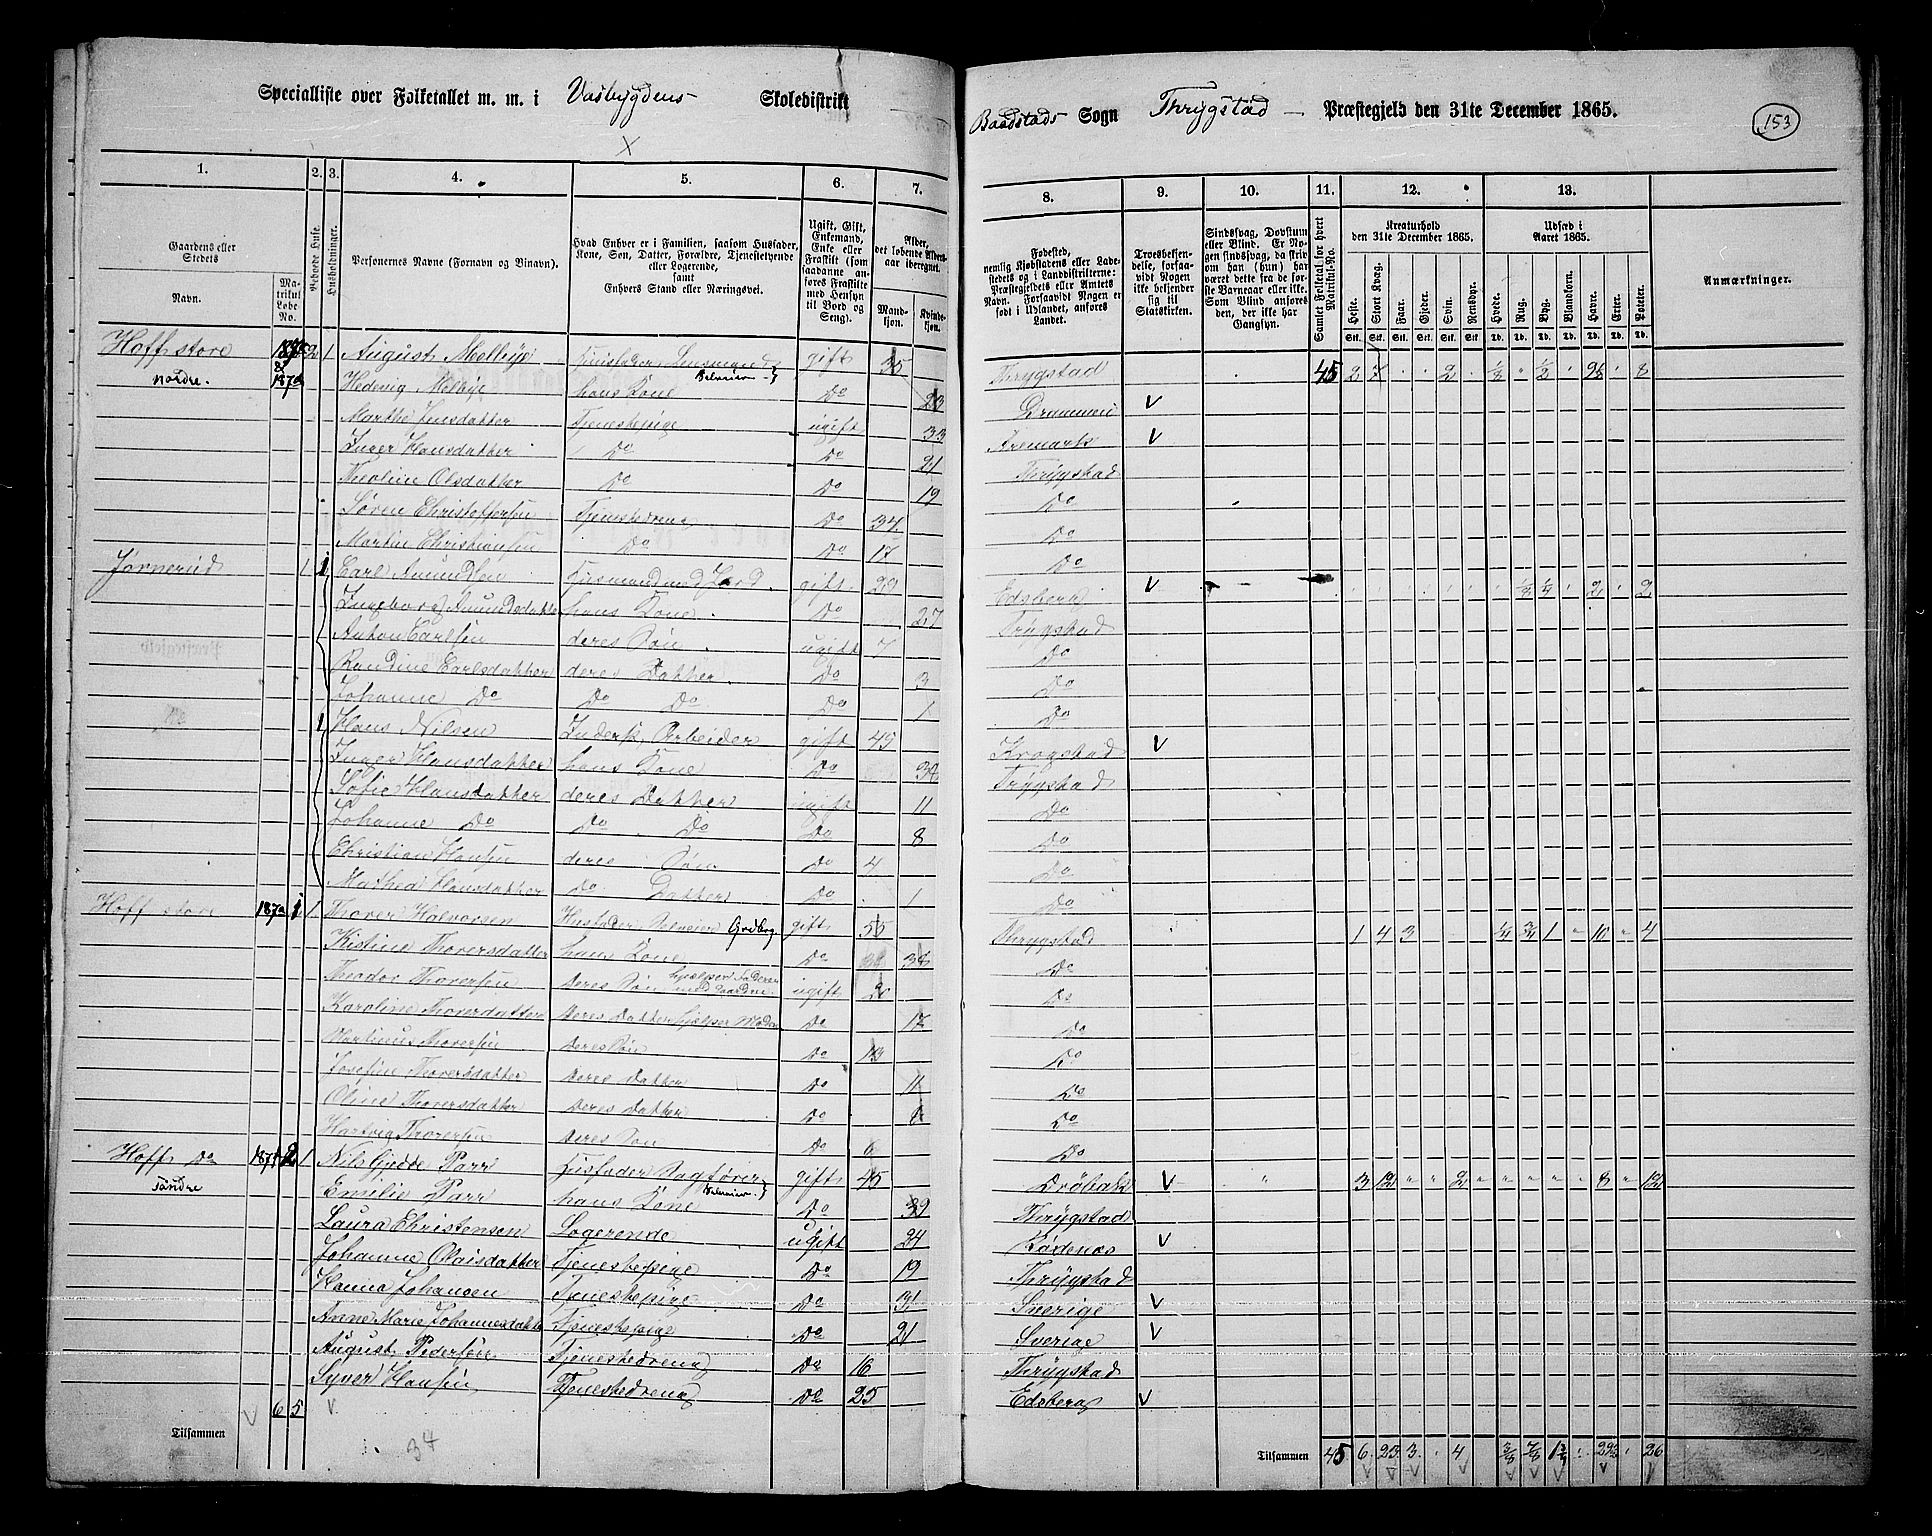 Specialliste over Folketallet m. m. i Vasbygdens Skoledistrikt
Baadstads Sogn Thrygstad Præstegjeld den 31te December 1865.
153
1. 2. 3. 4. 5. 6. 7. 8. 9. 10. 11. 12. 13.
Gaardens eller Stedets
Navn.
Matrikul Løbe-No.
Beboede Huse.
Husholdninger.
Personernes Navne (Fornavn og Binavn).
Hvad Enhver er i Familien, saasom Husfader, Kone, Søn, Datter, Forældre, Tjenestetyende eller Logerende, samt Enhvers Stand eller Næringsvei.
Ugift, Gift, Enkemand, Enke eller Fraskilt (som saadanne anføres Fraskilte med Hensyn til Bord og Seng).
Alder, det løbende Aldersaar iberegnet.
Mandkjøn. Kvindekjøn.
Fødested, nemlig Kjøbstadens eller Ladestedets og i Landdistrikterne: Præstegjeldets eller Amtets Navn. Forsaavidt Nogen er født i Udlandet, anføres Landet.
Troesbekjendelse, forsaavidt Nogen ikke bekjender sig til Statskirken.
Sindssvag, Døvstum eller Blind. Er Nogen sindssvag, da skriv om han (hun) har været dette fra de første Barneaar eller ikke. Som Blind anføres den, der ikke har Gangsyn.
Samlet Folketal for hvert Matrikul-No.
Kreaturhold den 31te December 1865.
Heste. Stort Kvæg. Faar. Gjeder. Svin. Rensdyr.
Udsæd i Aaret 1865.
Hvede. Rug. Byg. Blandkorn. Havre. Erter. Poteter.
Anmærkninger.
Hoff store 2 1 August Melbye Husfader Lensmand gift 35 Thrygstad 45 2 7 2 1/8 1/2 8
nordre. 187a Hedevig Melbye hans Kone Selveier Do 23 Drammen
Marthe Jensdatter Tjenestepige ugift 33 Aremarks
Inger Hansdatter Do Do 21 Thrygstad
Theoline Olsdatter Do Do 19 Do
Søren Christoffersen Tjenestedreng Do 34 Do
Martin Christiansen Do Do 17 Do
Jørnerud 1 1 Carl Amundsen Husmand med Jord gift 29 Edsberg 1/8 1/4 2 2
Ingeborg Amundsdatter hans Kone Do 27 Trygstad
Anton Carlsen deres Søn ugift 7 Do
Randine Carlsdatter deres Datter Do 3 Do
Johanne Do Do Do Do 1 Do
1 Hans Nilsen Inderst Arbeider gift 45 Krogstad
Inger Hansdatter hans Kone Do Trygstad
Sofie Hansdatter deres Datter ugift 11 Do
Johanne Do Do Do Do 8 Do
Christian Hansen deres Søn Do 4 Do
Mathea Hansdatter Do Datter Do 1 Do
Hoff store 187a 1 1 Thorer Halvorsen Husfader Selveier Grdbrg. gift 55 Thrygstad 1 4 3 1/4 3/4 1 10 4
Kistine Thorersdatter hans Kone Do 38 Do
Theodor Thorersen Deres Søn hjelper Faderen med Gaarden ugift Do
Karoline Thorersdatter Deres Datter hjelper Moderen Do 17 Do
Martinus Thorersen Deres Søn Do 13 Do
Josefine Thorersdatter Deres Datter Do 11 Do
Oline Thorersdatter Deres Datter Do Do
Hartvig Thorersen Deres Søn Do 6 Do
Hoff Do 2 1 Nils Gjedde Parr Husfader Sagfører gift 45 Drøbak 3 12 2 8 12
søndre Emilie Parr hans Kone Selveier Do 39 Thrygstad
Laura Christensen Logerende ugift 24 Rødenæs
Johanne Olaisdatter Tjenestepige Do 19 Thrygstad
Hanna Johansen Tjenestepige Do 31 Sverige
Anne Marie Johannesdatter Tjenestepige Do 21 Sverige
August Pedersen Tjenestedreng Do 16 Thrygstad
Syver Hansen Tjenestedreng Do 25 Edsberg
6 5
Tilsammen 34
Tilsammen 45 6 23 3 4 3/8 7/8 26